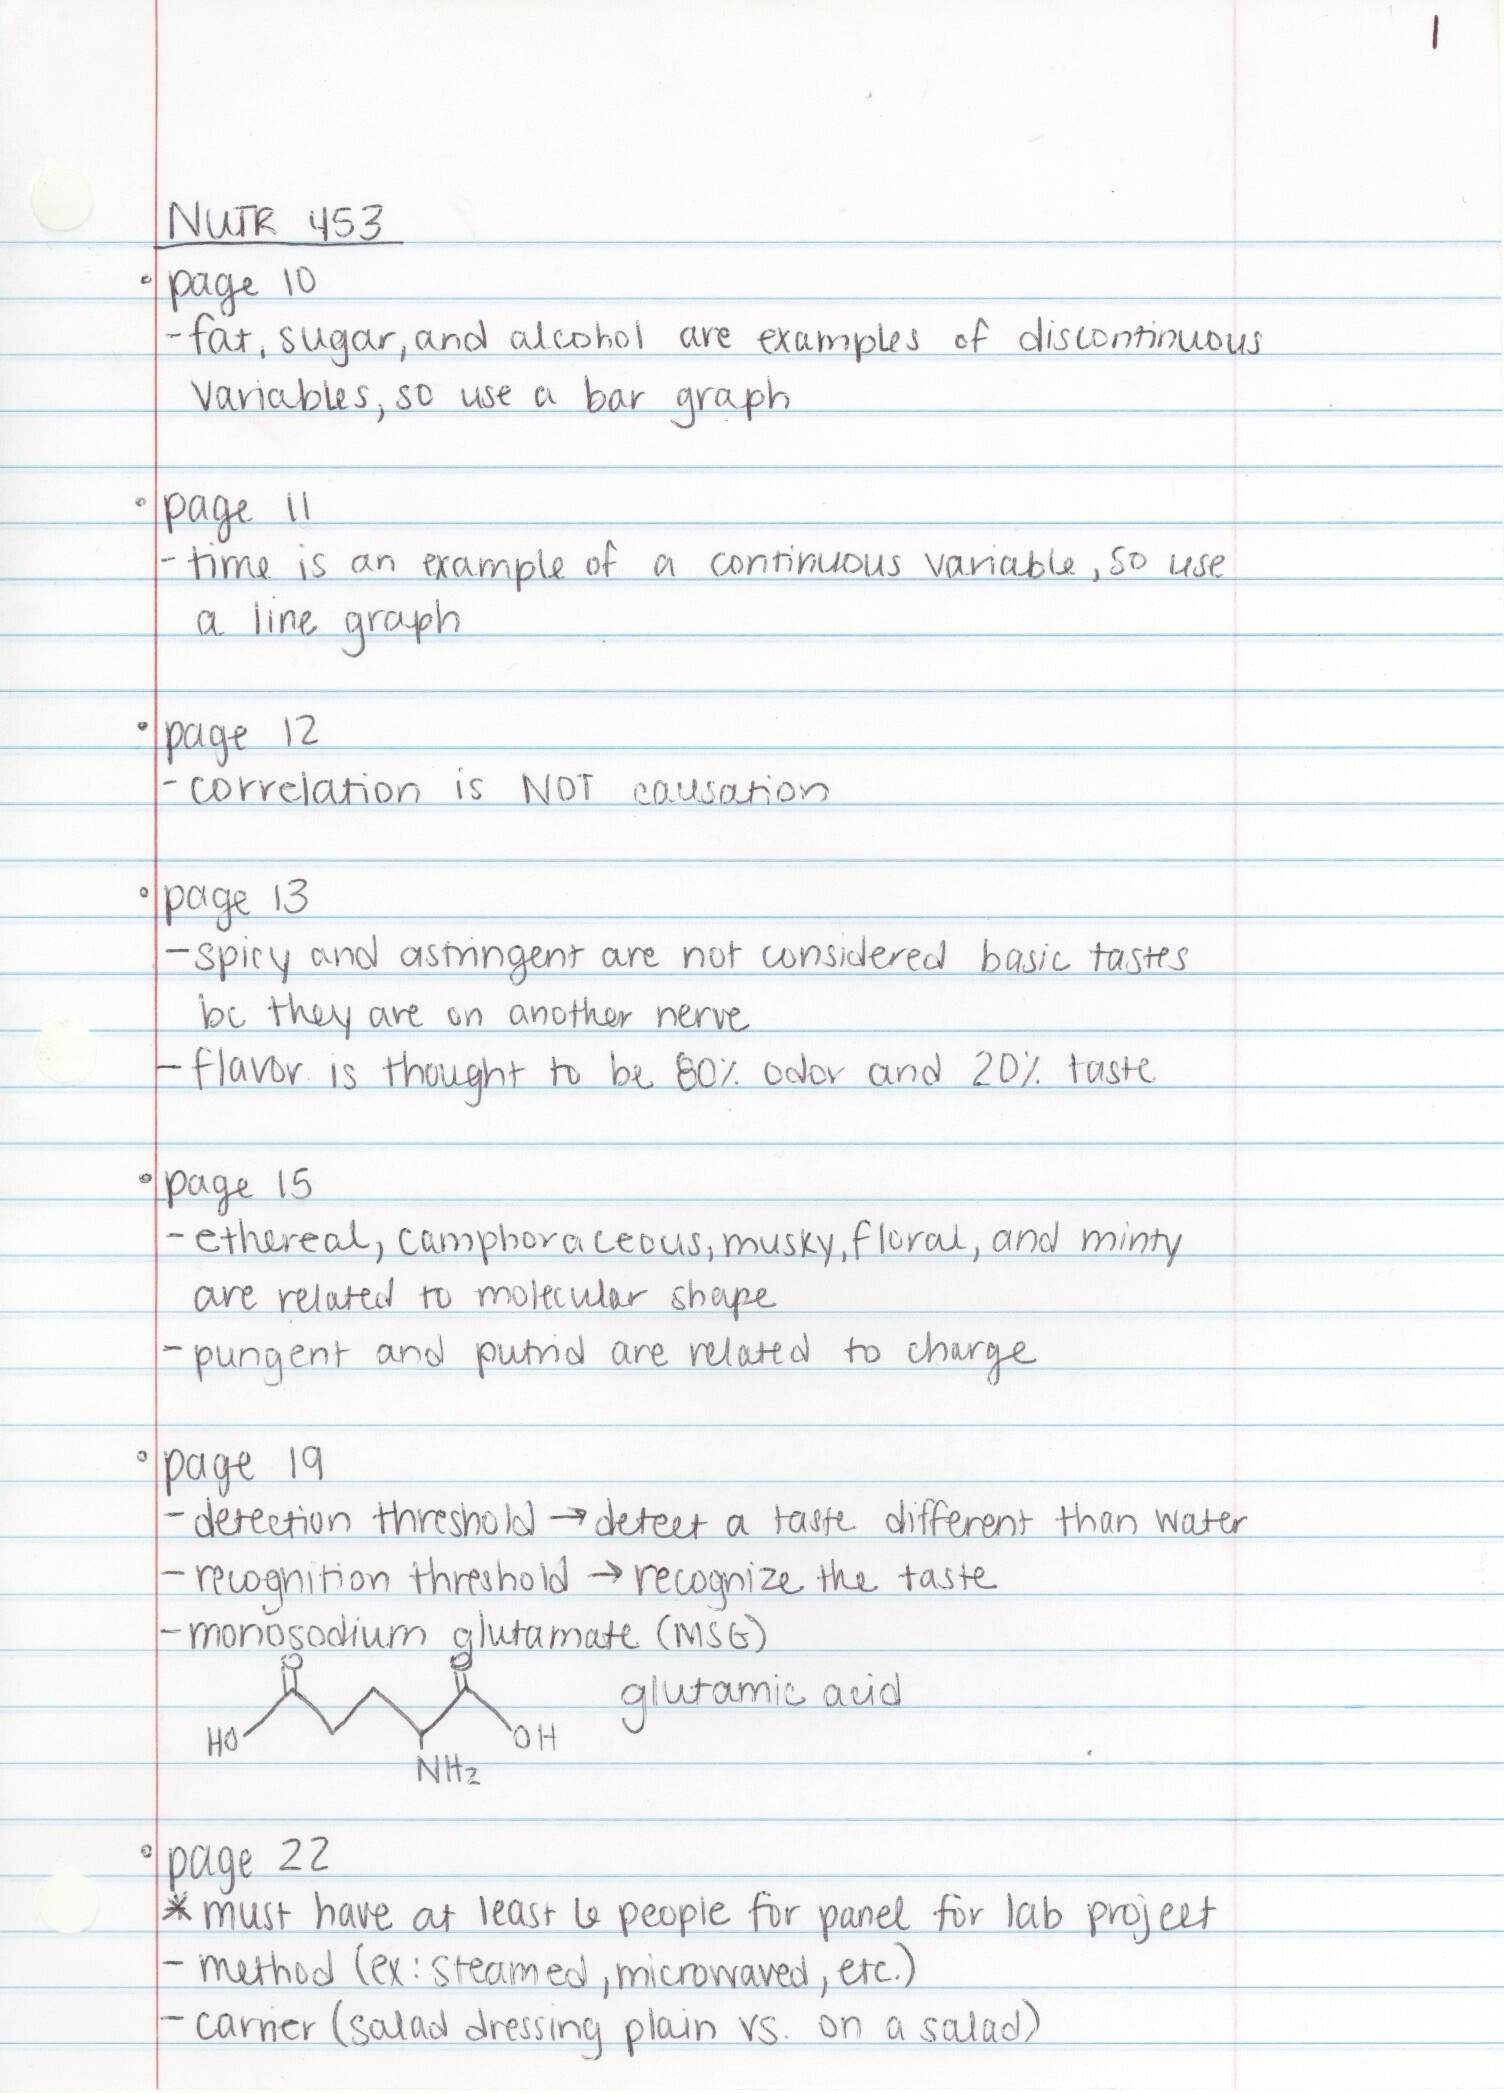 1
NUTR 453
• page 10
- fat, sugar, and alcohol are examples of discontinuous
variables, so use a bar graph
• page 11
- time is an example of a continuous variable, so use
a line graph
• page 12
- correlation is NOT causation
• page 13
- spicy and astringent are not considered basic tastes
bc they are on another nerve
- flavor is thought to be 80% odor and 20% taste
• page 15
- ethereal, camphoraceous, musky, floral, and minty
are related to molecular shape
- pungent and putrid are related to charge
• page 19
- detection threshold → detect a taste different than water
- recognition threshold → recognize the taste
- monosodium glutamate (MSG)
O O
glutamic acid
HO OH
NH₂
• page 22
* must have at least 6 people for panel for lab project
- method (ex: steamed, microwaved, etc.)
- carrier (salad dressing plain vs. on a salad)